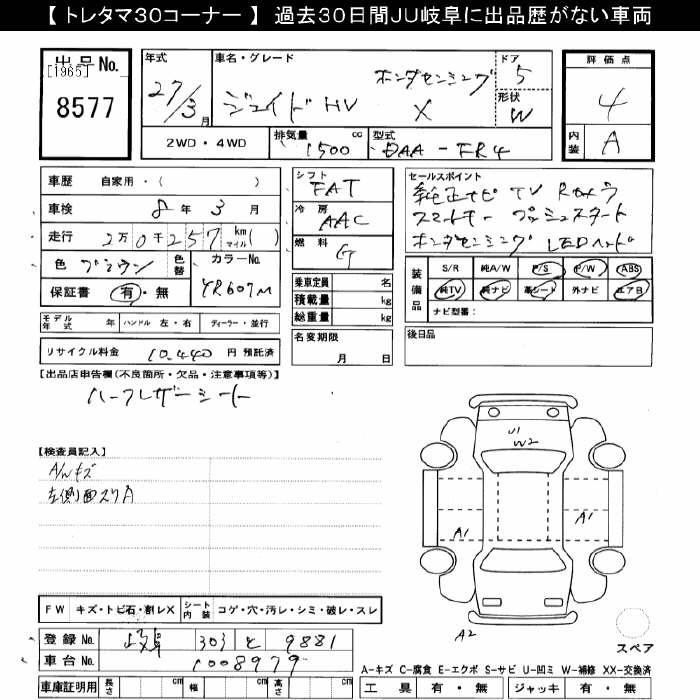 【 トレタマ30コーナー 】 過去30日間JU岐阜に出品歴がない車両
出品No.
[1965]
8577
年式
27/3月
車名・グレード
ホンダセンシング
ジェイド HV X
ドア
5
形状
W
評価点
4
内装
A
2WD・4WD
排気量
1500 cc
型式
DAA-FR4
車歴 自家用・( )
車検 8年3月
走行 2万0千257 km マイル( )
色 ブラウン
色替
カラーNo.
YR607M
保証書 有・無
シフト
FAT
冷房
AAC
燃料
G
セールスポイント
純正ナビ TV Rカメラ
スマートキー プッシュスタート
ホンダセンシング LEDヘッド
乗車定員 名
積載量 kg
総重量 kg
装備品
S/R 純A/W P/S P/W ABS
純TV 純ナビ 革シート 外ナビ エアB
ナビ型番:
モデル年式 年 ハンドル 左・右 ディーラー・並行
名変期限
月 日
後日品
リサイクル料金 10,440 円 預託済
【出品店申告欄(不良箇所・欠品・注意事項等)】
ハーフレザーシート
【検査員記入】
A/Wキズ
左側面スリA
U1
W2
A1
A1
A2
スペア
FW キズ・トビ石・割レX
シート内装 コゲ・穴・汚レ・シミ・破レ・スレ
登録No. 岐阜 303 と 9881
車台No. 1008979
A-キズ C-腐食 E-エクボ S-サビ U-凹ミ W-補修 XX-交換済
車庫証明用 長さ cm 幅 cm 高さ cm
工具 有・無 ジャッキ 有・無